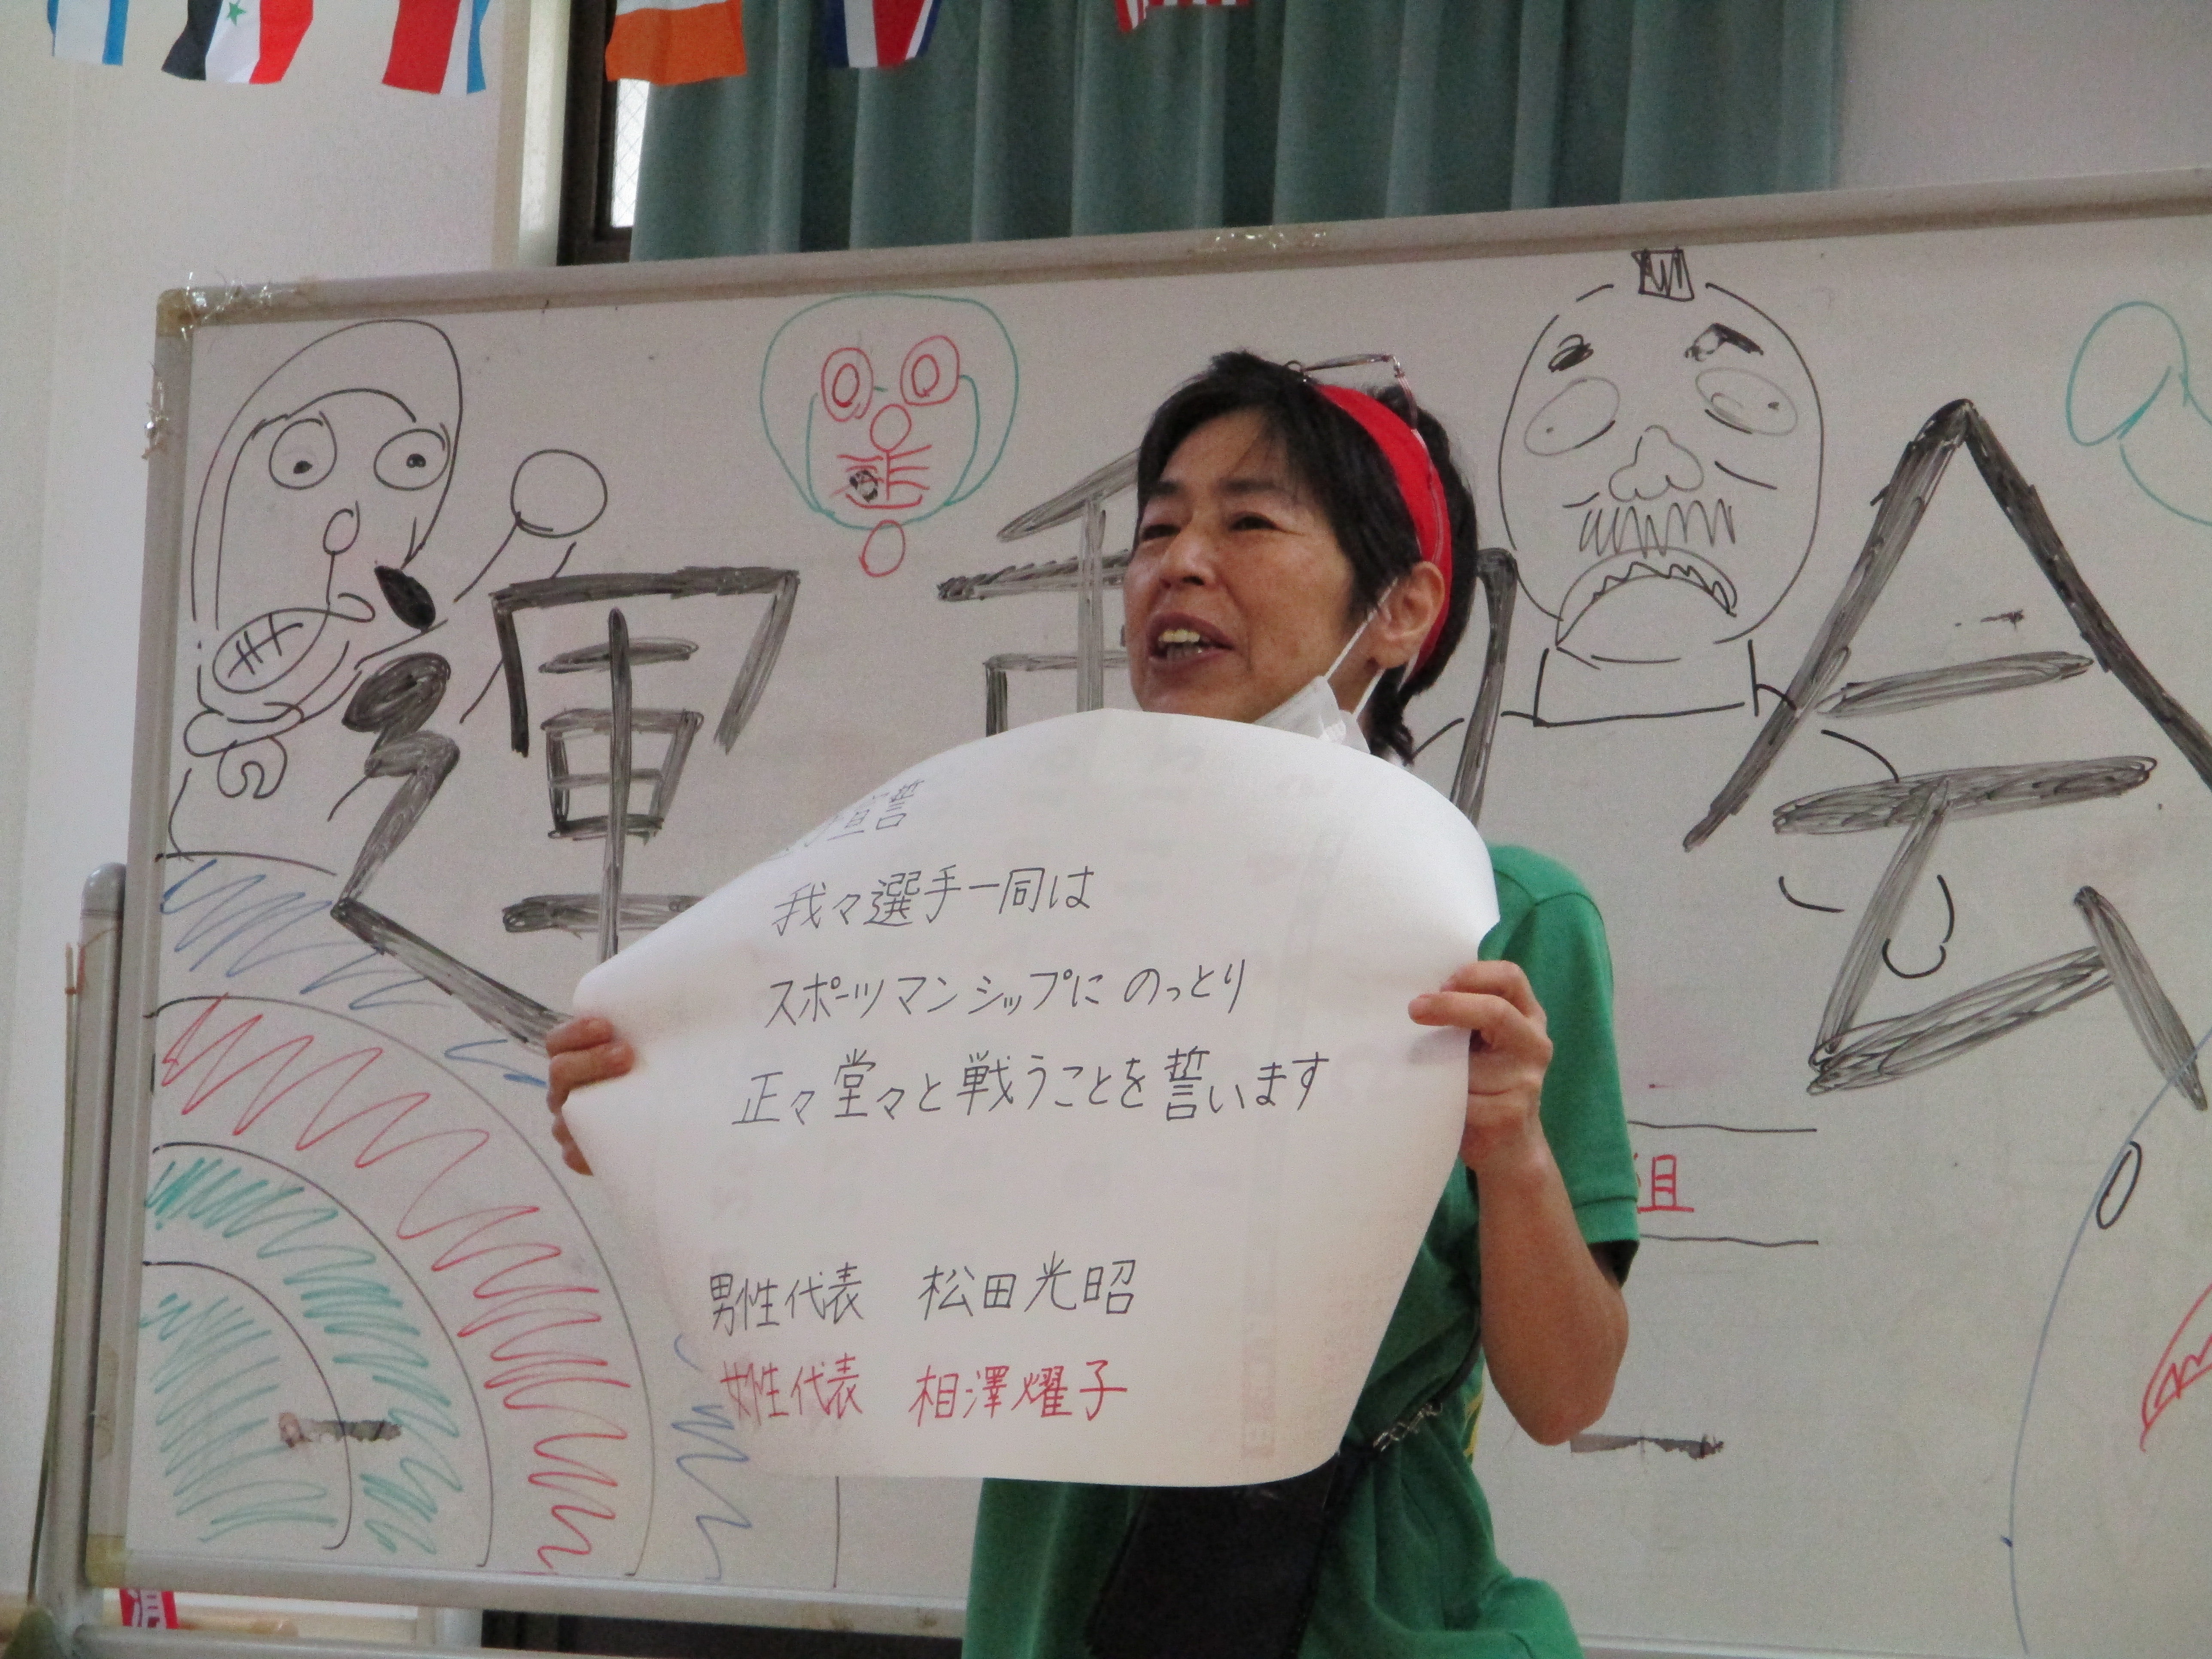 運動会
宣誓
我々選手一同は
スポーツマンシップに のっとり
正々堂々と戦うことを誓います
男性代表 松田光昭
女性代表 相澤燿子
組